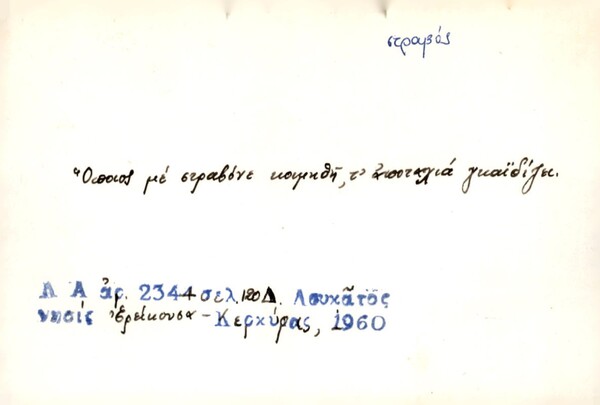 στραβός
Ὅποιος μέ στραβόνε κοιμηθῆ, τ' ἀποταχιά γκαϊδίζει.
Λ Α ἀρ. 2344 σελ. 120 Δ. Λουκᾶτος
νησίς Ἐρείκουσα - Κερκύρας, 1960